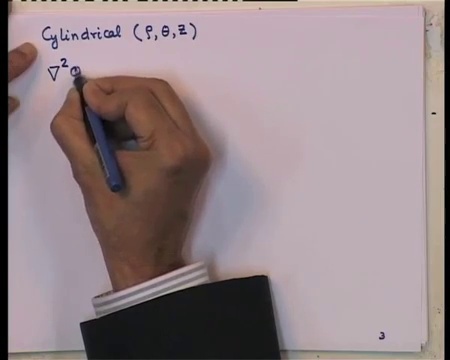 Cylindrical (ρ, θ, z)
∇²Φ
3